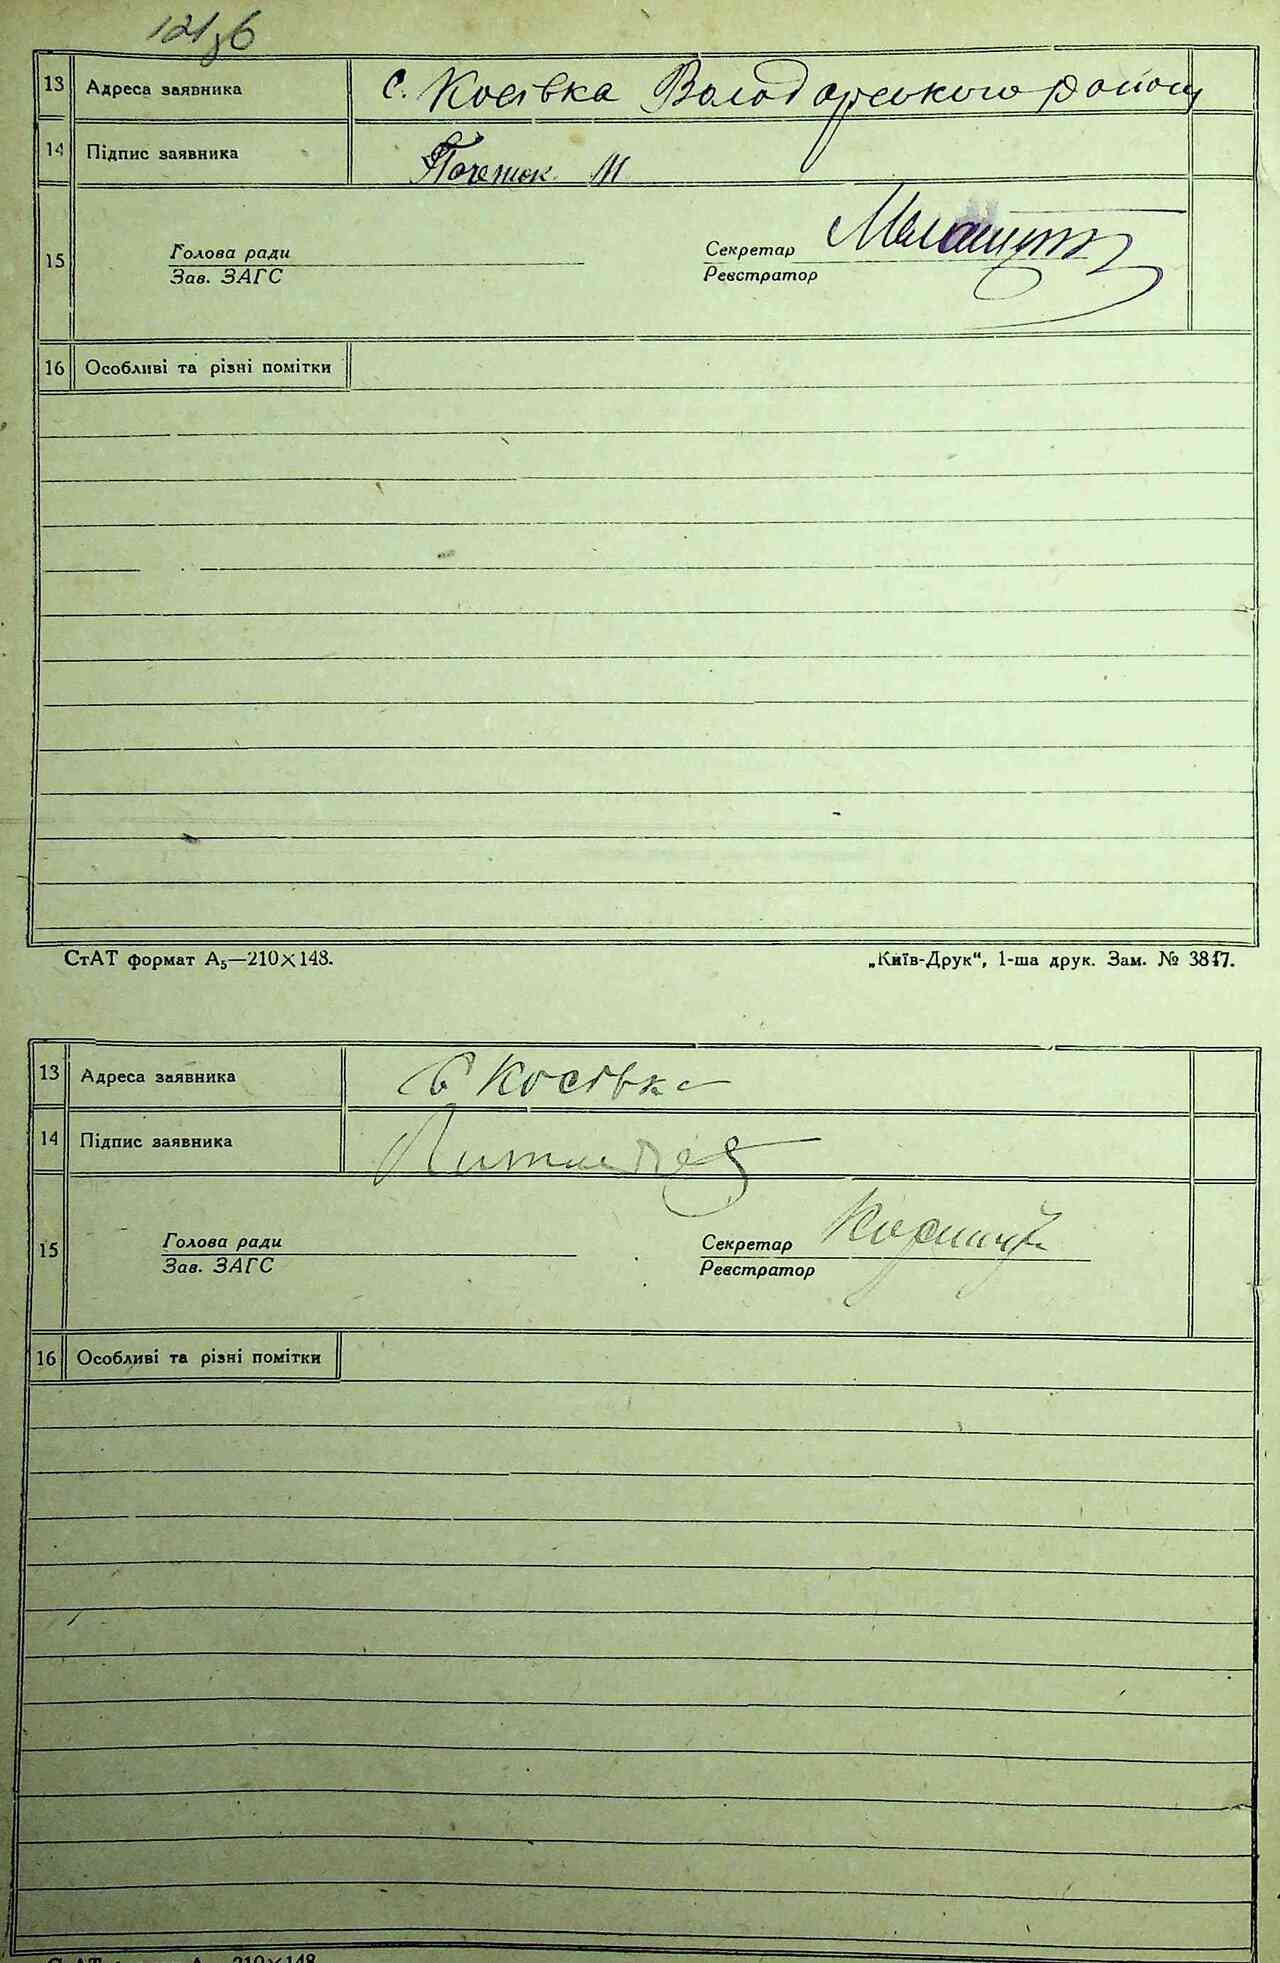 121зб
13 Адреса заявника с. Косівка Володарського району
14 Підпис заявника
15 Голова ради Секретар
Зав. ЗАГС Реєстратор
16 Особливі та різні помітки
СтАТ формат А₅—210×148. „Київ-Друк“, 1-ша друк. Зам. № 3817.
13 Адреса заявника с Косівка
14 Підпис заявника
15 Голова ради Секретар
Зав. ЗАГС Реєстратор
16 Особливі та різні помітки
СтАТ формат А₅—210×148